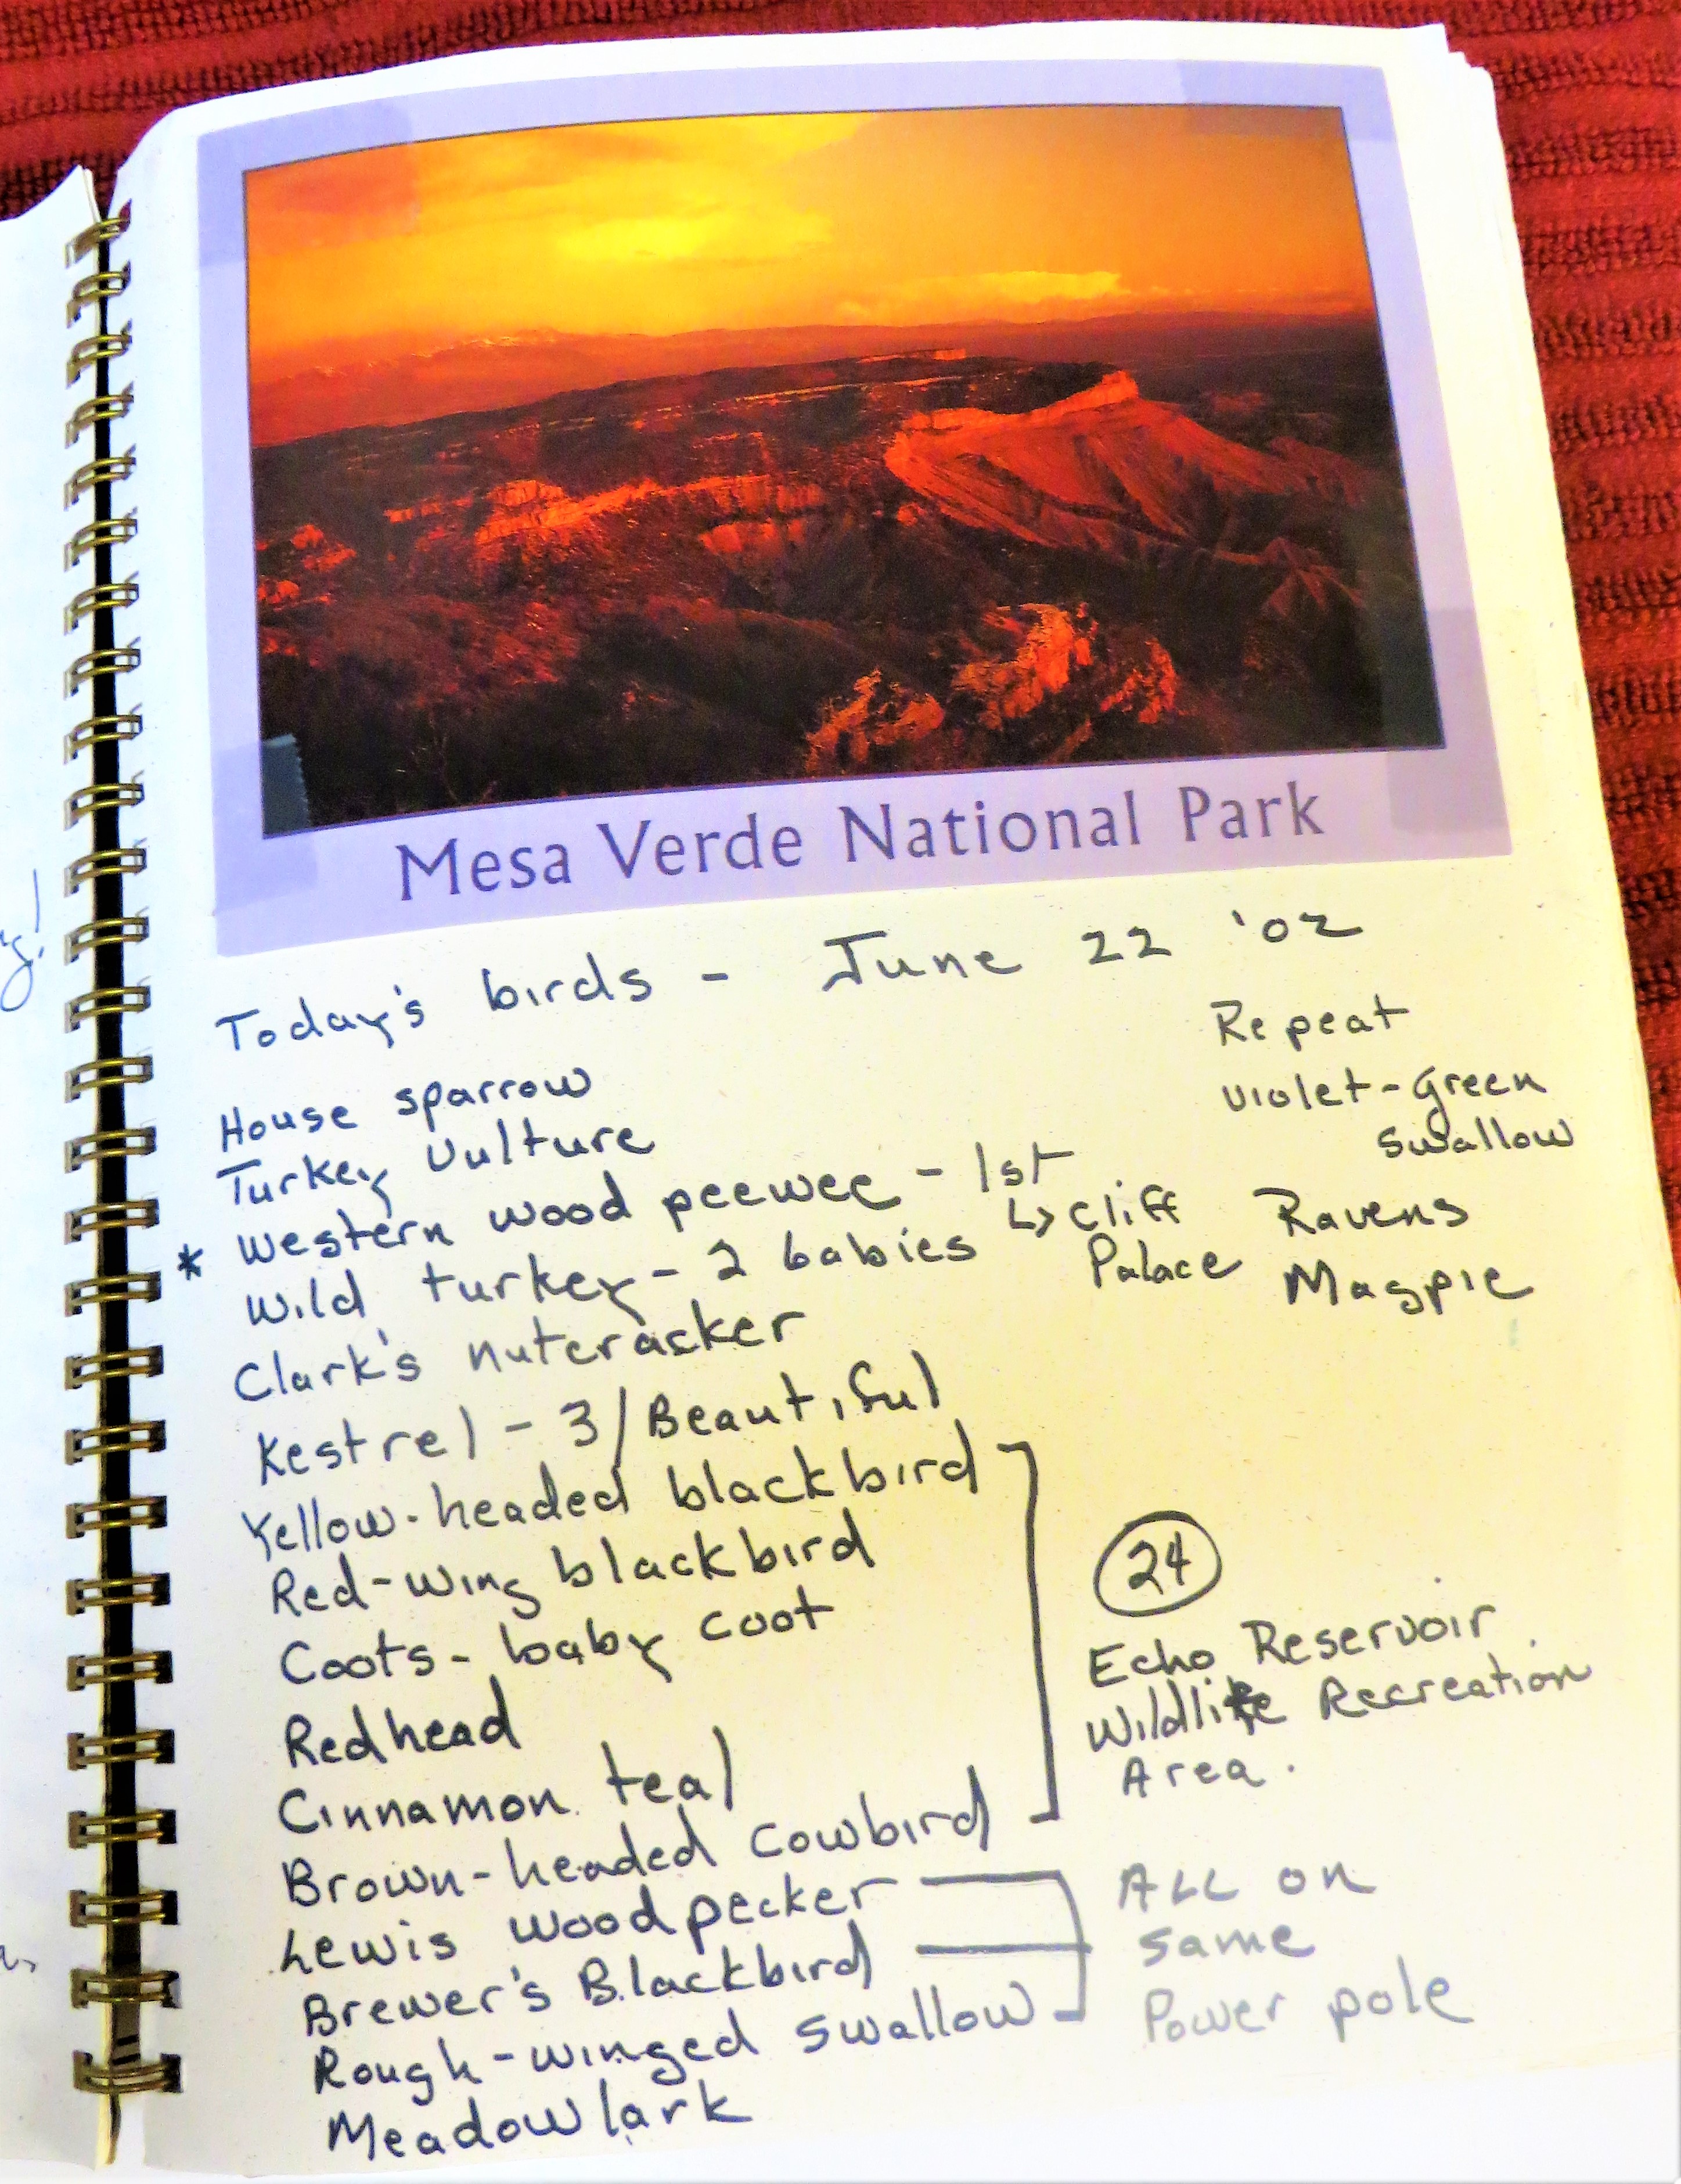 Mesa Verde National Park
Today's birds - June 22 '02
House sparrow
Turkey Vulture
* Western wood peewee - 1st
↳ Cliff
Palace
Wild turkey - 2 babies
Clark's nutcracker
Kestrel - 3/Beautiful
Yellow-headed blackbird
Red-wing blackbird
Coots - baby coot
Redhead
Cinnamon teal
Brown-headed cowbird
Lewis woodpecker
Brewer's Blackbird
Rough-winged swallow
Meadowlark
Repeat
Violet-Green
Swallow
Ravens
Magpie
24
Echo Reservoir
Wildlife Recreation
Area.
ALL on
same
Power pole